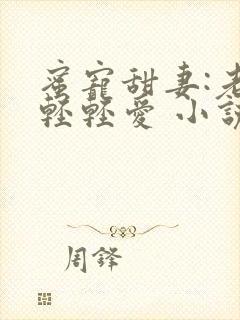 蜜寵甜妻:老
輕輕愛 小說
周鋒